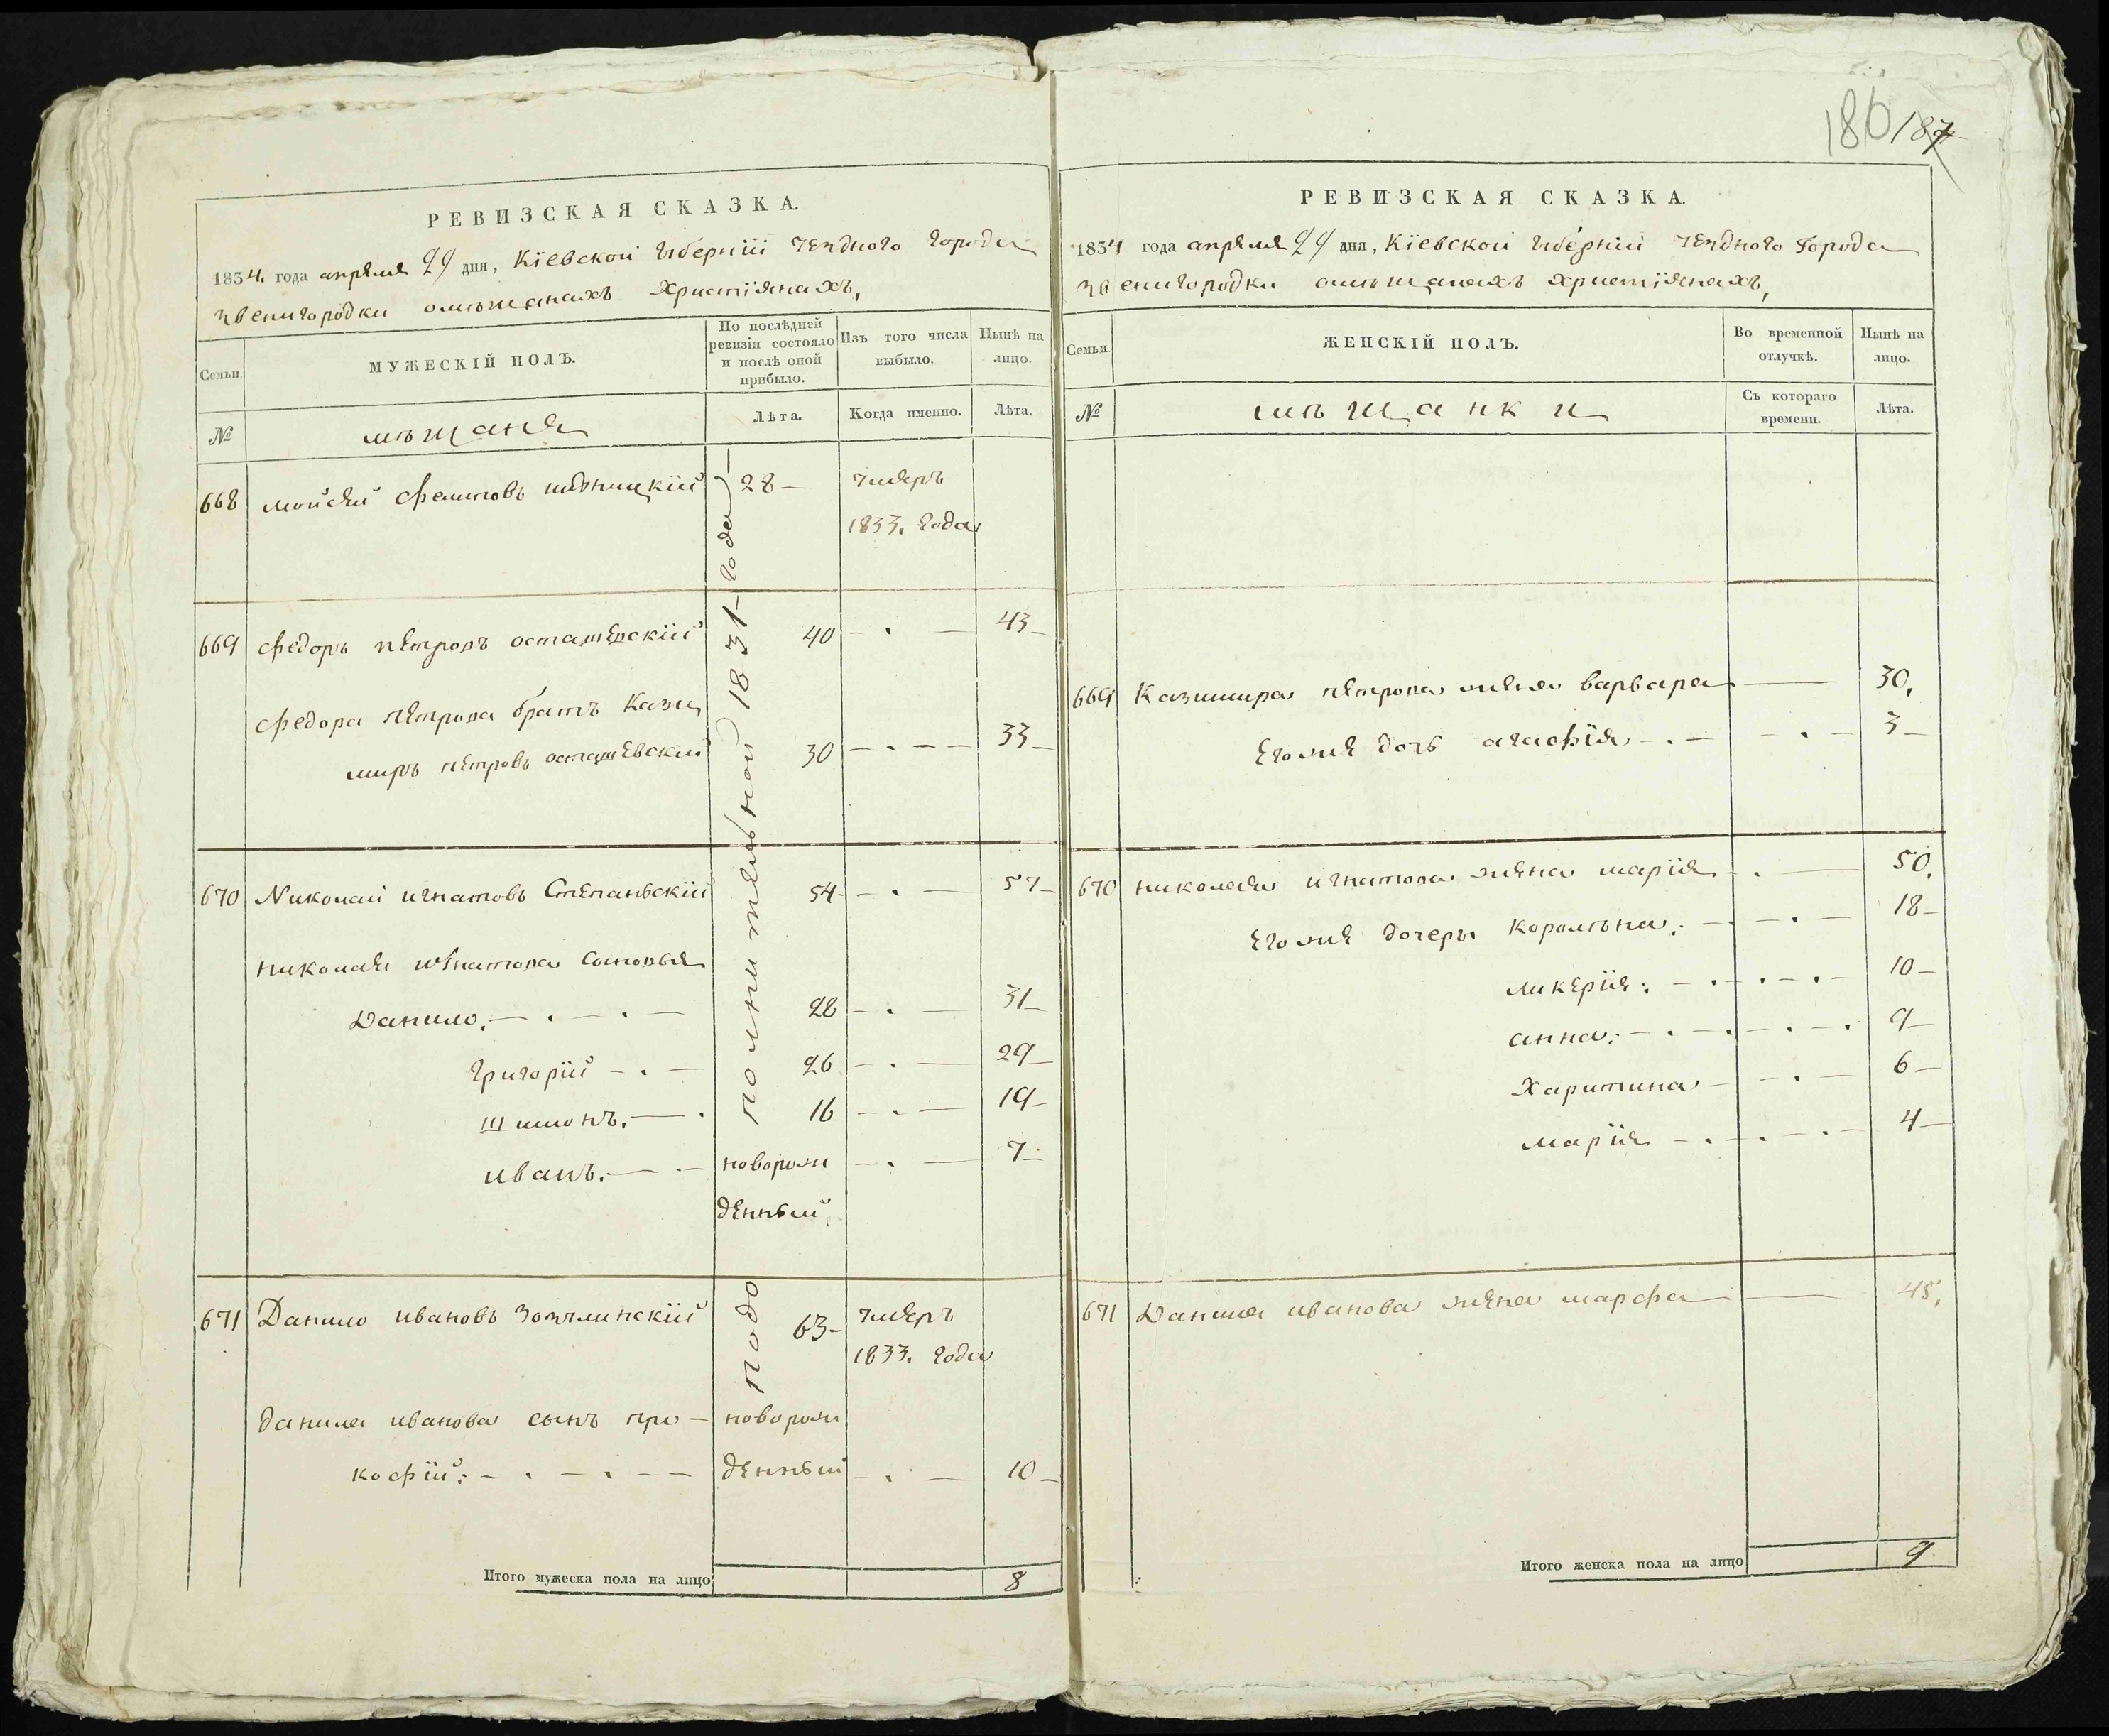 180 187
РЕВИЗСКАЯ СКАЗКА.
1834. года апреля 29 дня, Кіевской губерніи уезднаго города
звенигородки омѣщанахъ христіянахъ,
Семьи.
МУЖЕСКІЙ ПОЛЪ.
По послѣдней ревизіи состояло и послѣ оной прибыло.
Изъ того числа выбыло.
Нынѣ на лицо.
№
мѣщанѣ
Лѣта.
Когда именно.
Лѣта.
подополнительной 1831 года
668 мойсей 28 умеръ
1833. года
669 федоръ петровъ осташевскій 40 43
федора петрова братъ Кази
миръ петровъ осташевскій 30 33
670 Николай игнатовъ Степаньскій 54 57
николая игнатова сыновья
Данило. 28 31
григорій 26 29
Шимонъ. 16 19
иванъ. новорож 7
денный.
671 Данило ивановъ 63 умеръ
1833. года
данила иванова сынъ про новорож
кофій: денный 10
Итого мужеска пола на лицо 8
РЕВИЗСКАЯ СКАЗКА.
1834 года апреля 29 дня, Кіевской губерніи уезднаго Города
звенигородки омѣщанахъ христіянахъ,
Семьи.
ЖЕНСКІЙ ПОЛЪ.
Во временной отлучкѣ.
Нынѣ на лицо.
№
мѣщанки
Съ котораго времени.
Лѣта.
669 Казимира петрова жена варвара 30.
Егоже дочь агафія 3
670 николая игнатова жена марія 50.
Егоже дочеры Корольна: 18
ликерія: 10
анна: 9
Харитина 6
марія 4
671 Данила иванова жена марфа 45.
Итого женска пола на лицо 9